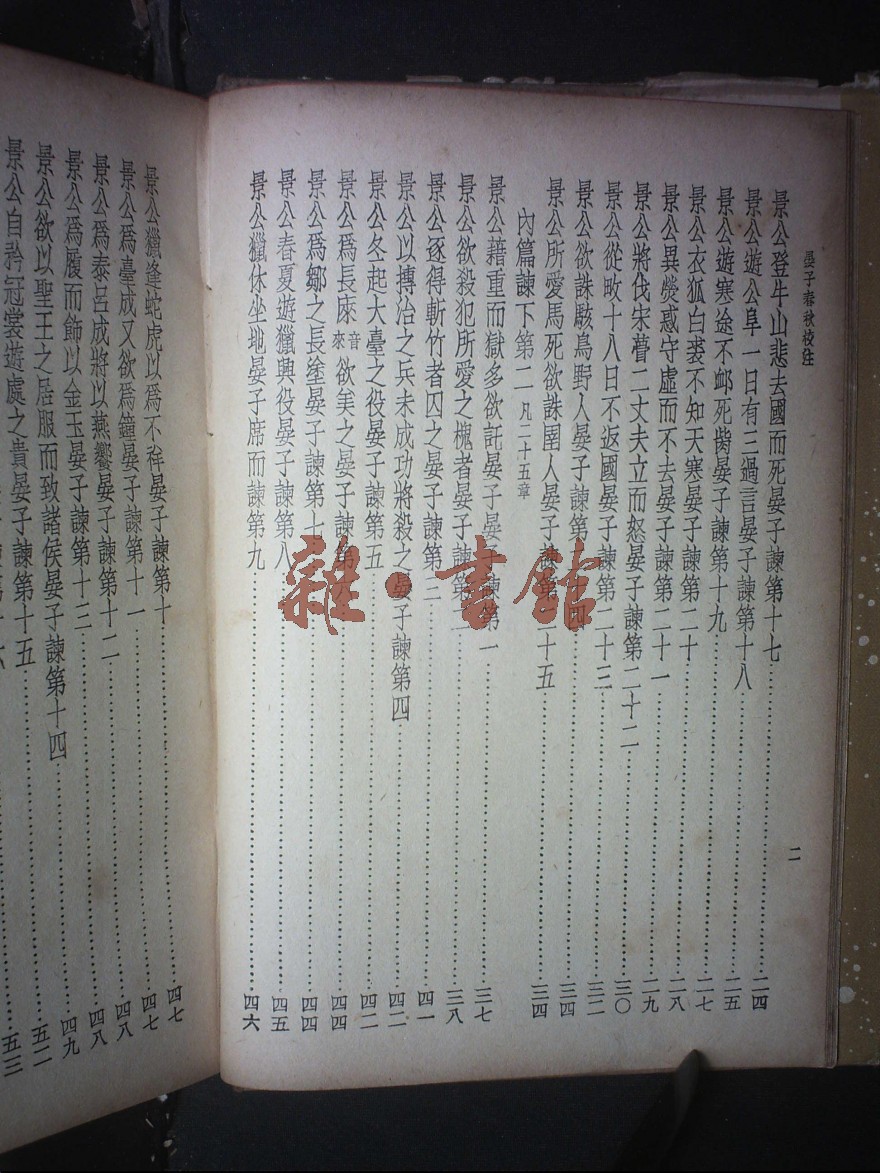 晏子春秋校注
二
景公登牛山悲去國而死晏子諫第十七……二四
景公遊公阜一日有三過言晏子諫第十八……二五
景公遊寒塗不卹死胔晏子諫第十九……二七
景公衣狐白裘不知天寒晏子諫第二十……二八
景公異熒惑守虛而不去晏子諫第二十一……二九
景公將伐宋瞢二丈夫立而怒晏子諫第二十二……三〇
景公從畋十八日不返國晏子諫第二十三……三二
景公欲誅駭鳥野人晏子諫第二十四……三四
景公所愛馬死欲誅圉人晏子諫第二十五……三四
內篇諫下第二 凡二十五章
景公藉重而獄多欲託晏子晏子諫第一……三七
景公欲殺犯所愛之槐者晏子諫第二……三八
景公逐得斬竹者囚之晏子諫第三……四一
景公以搏治之兵未成功將殺之晏子諫第四……四二
景公冬起大臺之役晏子諫第五……四二
景公爲長庲音來欲美之晏子諫第六……四四
景公爲鄒之長塗晏子諫第七……四四
景公春夏遊獵興役晏子諫第八……四五
景公獵休坐地晏子席而諫第九……四六
景公獵逢蛇虎以爲不祥晏子諫第十……四七
景公爲臺成又欲爲鐘晏子諫第十一……四七
景公爲泰呂成將以燕饗晏子諫第十二……四八
景公爲履而飾以金玉晏子諫第十三……四八
景公欲以聖王之居服而致諸侯晏子諫第十四……四九
景公自矜冠裳遊處之貴晏子諫第十五……五二
五三
雜·書館